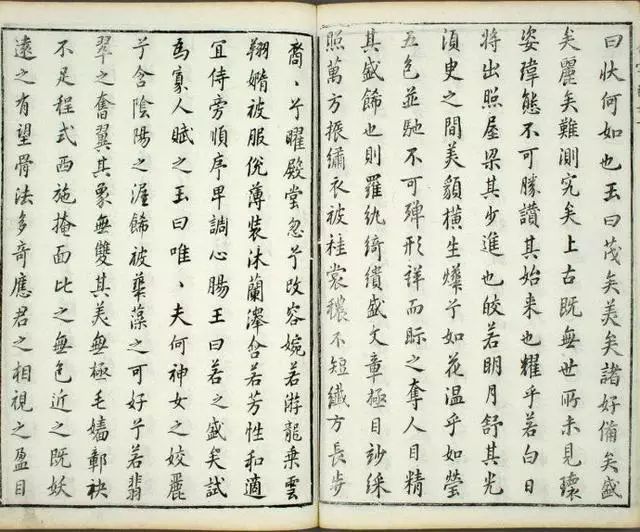 曰狀何如也玉曰茂矣美矣諸好備矣盛
矣麗矣難測究矣上古既無世所未見瓌
姿瑋態不可勝讚其始來也耀乎若白日
將出照屋梁其步進也皎若明月舒其光
須臾之間美貌橫生燁兮如花溫乎如瑩
五色並馳不可殫形詳而眎之奪人目精
其盛飾也則羅紈綺繢盛文章極目妙綵
照萬方振繡衣被袿裳穠不短纖方長步
裔、兮曜殿堂忽兮改容婉若游龍乘雲
翔嫷被服侻薄裝沐蘭澤含若芳性和適
宜侍旁順序卑調心腸王曰若之盛矣試
為寡人賦之玉曰唯、夫何神女之姣麗
兮含陰陽之渥飾被華藻之可好兮若翡
翠之奮翼其象無雙其美無極毛嬙鄣袂
不足程式西施掩面比之無色近之既妖
遠之有望骨法多奇應君之相視之盈目